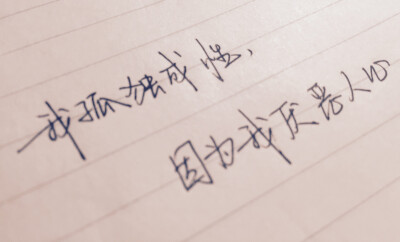 我孤独成性、
因为我厌恶人心